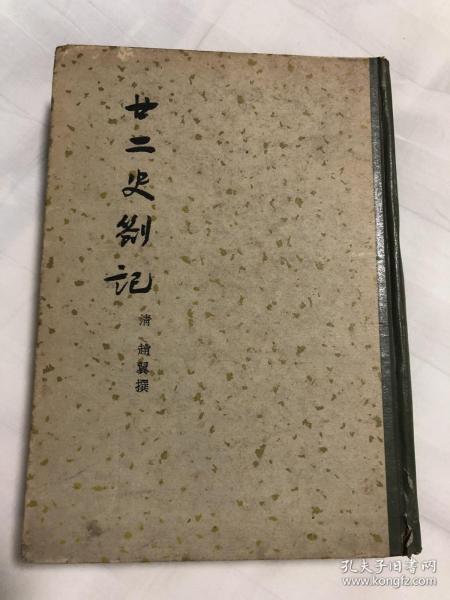 廿二史劄记
清 趙翼撰
孔夫子旧书网
www.kongfz.com